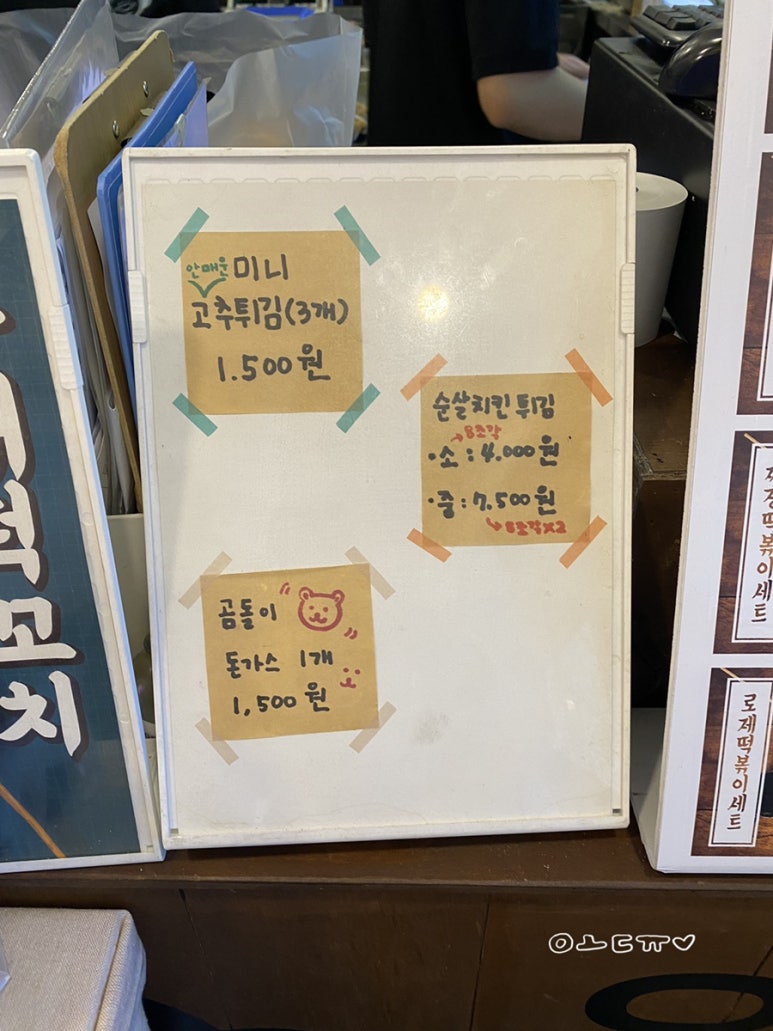 안매운 미니
고추튀김(3개)
1.500원
순살치킨 튀김
8조각
·소 : 4.000원
·중 : 7.500원
8조각x2
곰돌이
돈가스 1개
1,500원
떡꼬치
떡볶이세트
로제떡볶이세트
ㅇㅗㄷㅠ♡